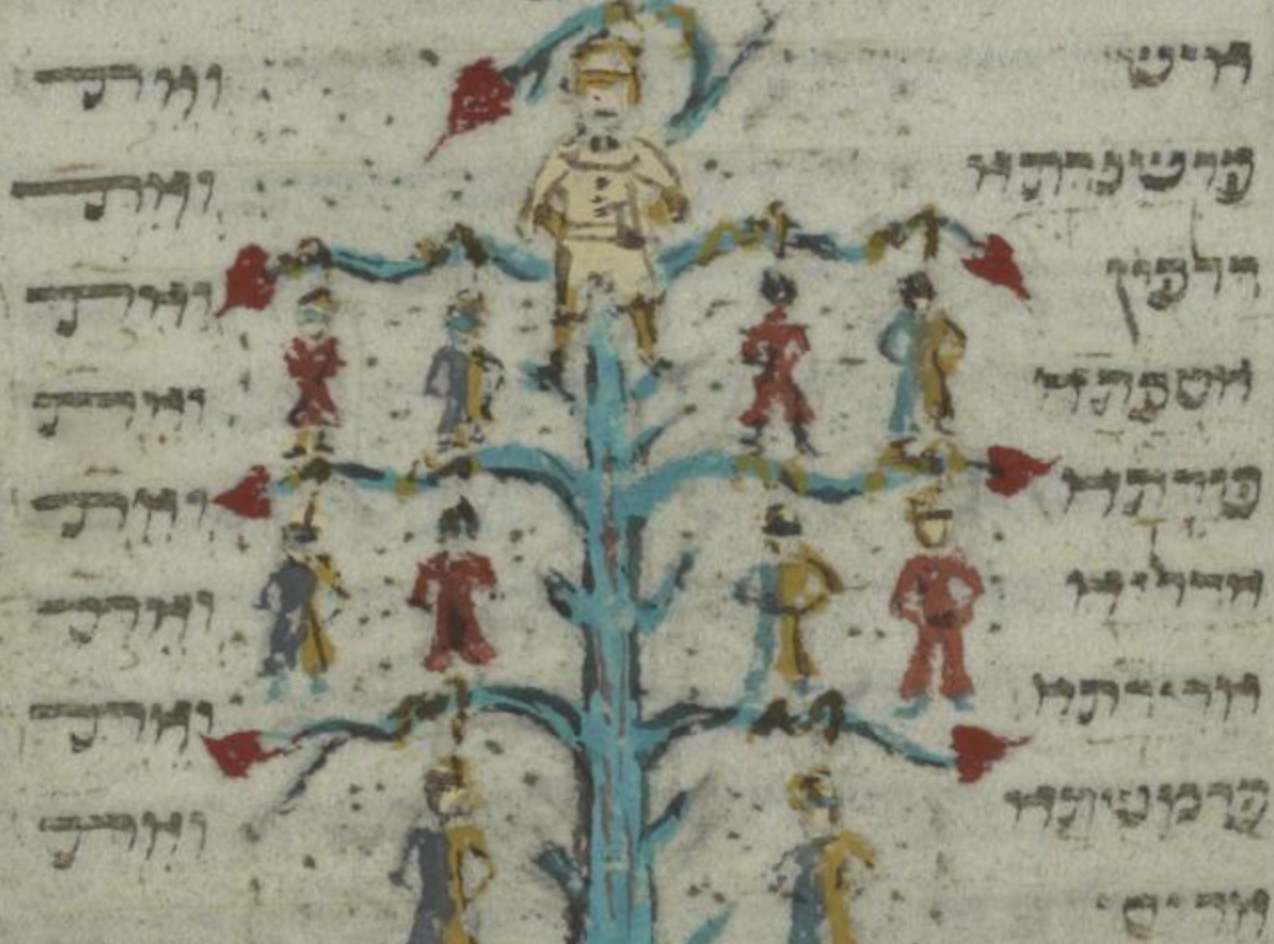 איש ואת
פרשנדתא ואת
דלפון ואת
אספתא ואת
פורתא ואת
אדליא ואת
ארידתא ואת
פרמשתא ואת
אריסי